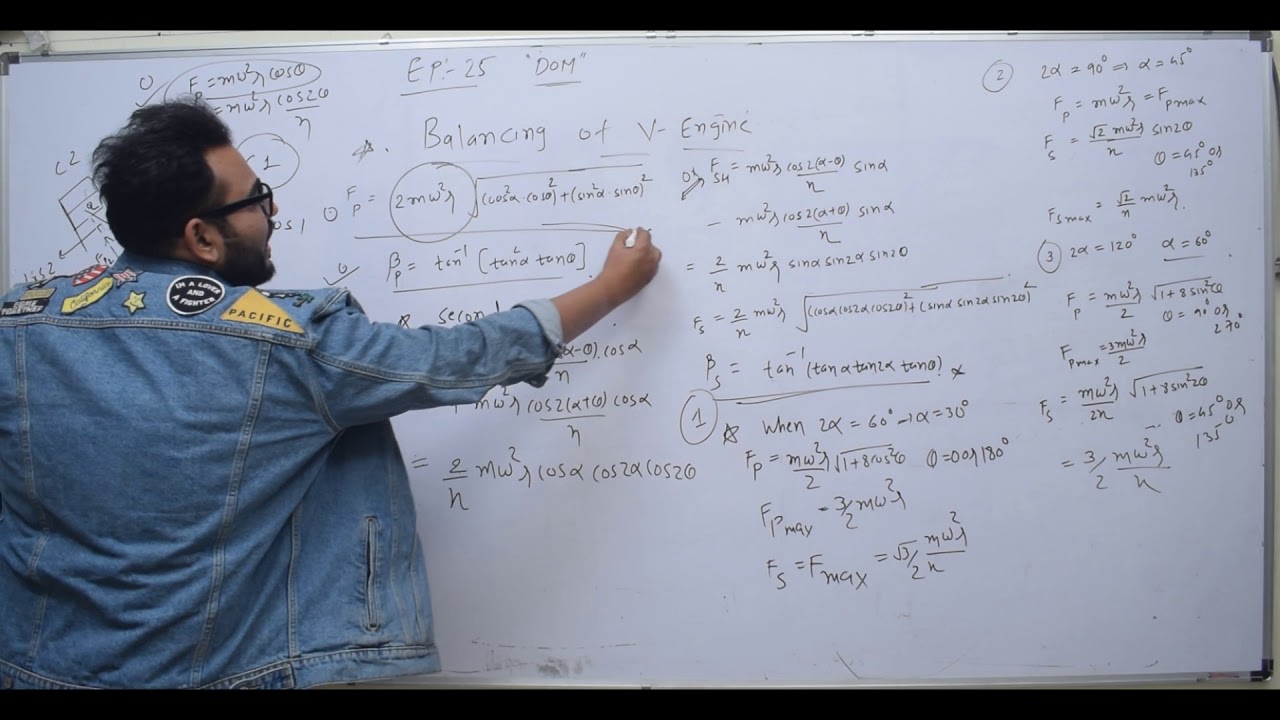 EP:- 25 "DOM"
Balancing of V-Engine
F_P = mω²r cosθ
= mω²r cos2θ/n
1
F_P = 2mω²r √((cos²α·cosθ)² + (sin²α·sinθ)²)
β_P = tan⁻¹ [tan²α tanθ]
α-θ) cosα
n
mω²r cos2(α+θ) cosα
n
= 2/n mω²r cosα cos2α cos2θ
F_SH = mω²r cos2(α-θ)/n sinα
- mω²r cos2(α+θ)/n sinα
= 2/n mω²r sinα sin2α sin2θ
F_S = 2/n mω²r √((cosα cos2α cos2θ)² + (sinα sin2α sin2θ)²
β_S = tan⁻¹ (tanα tan2α tanθ)
1
When 2α = 60° → α = 30°
F_P = mω²r/2 √(1+8cos²θ) θ=0 or 180°
F_Pmax = 3/2 mω²r
F_S = F_max = √3/2 mω²r/n
2
2α = 90° ⇒ α = 45°
F_P = mω²r = F_Pmax
F_S = √2 mω²r/n sin2θ
θ = 45° or
135°
F_Smax = √2/n mω²r.
3
2α = 120° α = 60°
F_P = mω²r/2 √(1+8sin²θ)
θ = 90° or
270°
F_Pmax = 3mω²r/2
F_S = mω²r/2n √(1+8sin²2θ)
θ = 45° or
135°
= 3/2 mω²r/n
I'M A LOVER
AND
A FIGHTER
PACIFIC
California